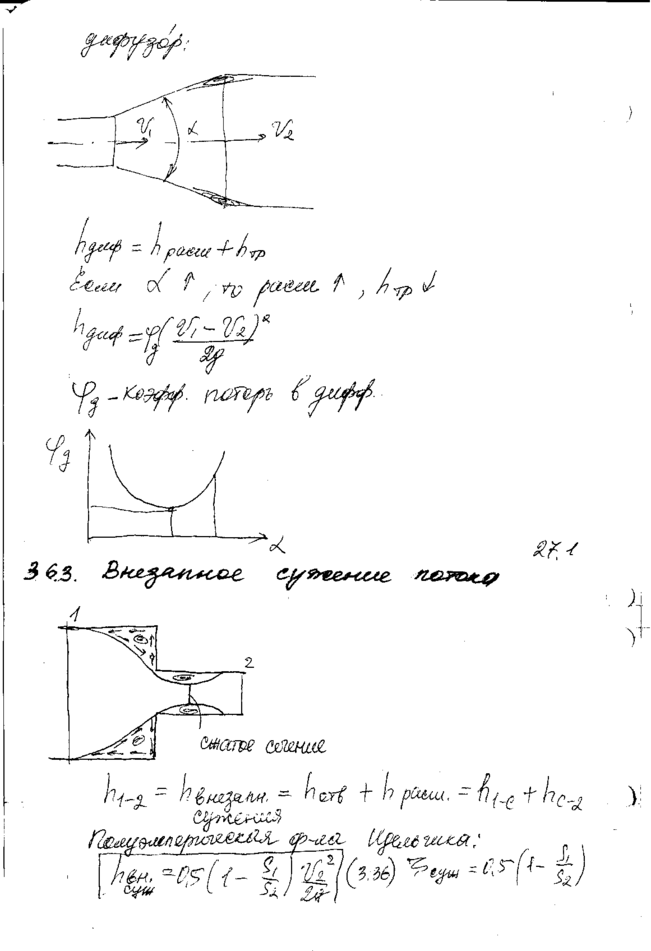 дифузо́р:
V₁ α V₂
hдиф = hрасш + hтр
Если α ↑, то расш ↑, hтр ↓
hдиф = φд (V₁ - V₂)² / 2g
φд - коэфф. потерь в дифф.
φд
α
27.1
3.6.3. Внезапное сужение потока
1
2
сжатое сечение
h₁₋₂ = hвнезапн. сужения = hотв + hрасш. = h₁₋c + hc₋₂
Полуэмперическая ф-ла Идельчика:
hвн. суш = 0,5 (1 - S₁/S₂) V₂²/2g (3.36) ξсуш = 0,5 (1 - S₁/S₂)